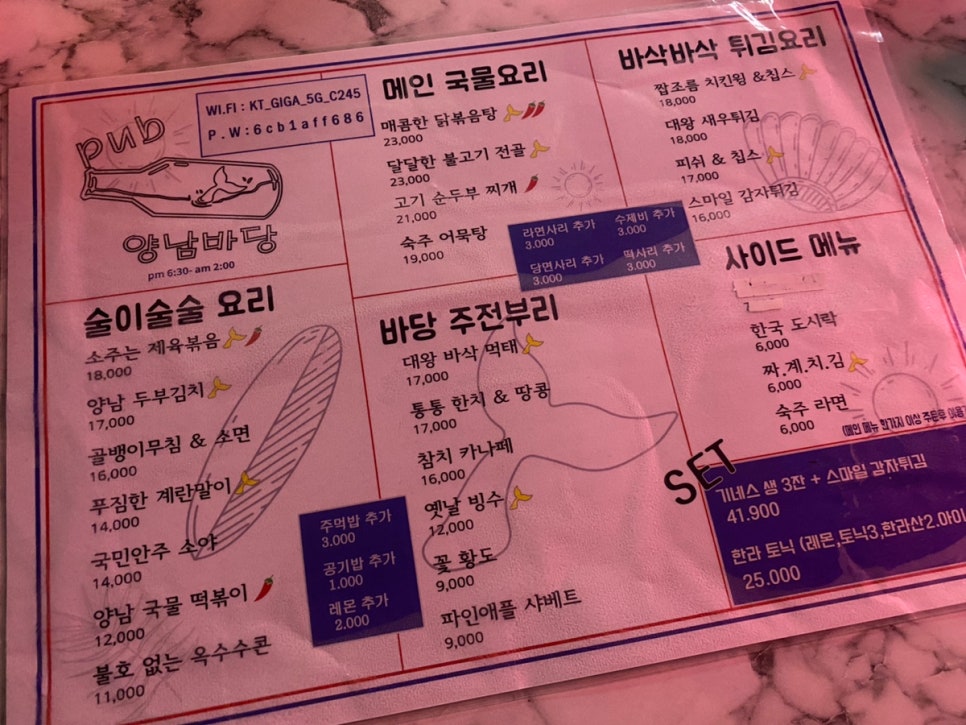 pub
WI.FI : KT_GIGA_5G_C245
P . W : 6cb1aff686
양남바당
pm 6:30- am 2:00
메인 국물요리
매콤한 닭볶음탕
23,000
달달한 불고기 전골
23,000
고기 순두부 찌개
21,000
숙주 어묵탕
19,000
라면사리 추가
3.000
수제비 추가
3.000
당면사리 추가
3.000
떡사리 추가
3.000
바삭바삭 튀김요리
짭조름 치킨윙 &칩스
18,000
대왕 새우튀김
18,000
피쉬 & 칩스
17,000
스마일 감자튀김
16,000
술이술술 요리
소주는 제육볶음
18,000
양남 두부김치
17,000
골뱅이무침 & 소면
16,000
푸짐한 계란말이
14,000
국민안주 소야
14,000
양남 국물 떡볶이
12,000
불호 없는 옥수수콘
11,000
주먹밥 추가
3.000
공기밥 추가
1.000
레몬 추가
2.000
바당 주전부리
대왕 바삭 먹태
17,000
통통 한치 & 땅콩
17,000
참치 카나페
16,000
옛날 빙수
12,000
꽃 황도
9,000
파인애플 샤베트
9,000
사이드 메뉴
한국 도시락
6,000
짜.계.치.김
6,000
숙주 라면
6,000
(메인 메뉴 한가지 이상 주문후 이용
SET
기네스 생 3잔 + 스마일 감자튀김
41.900
한라 토닉 (레몬,토닉3,한라산2.아이
25.000